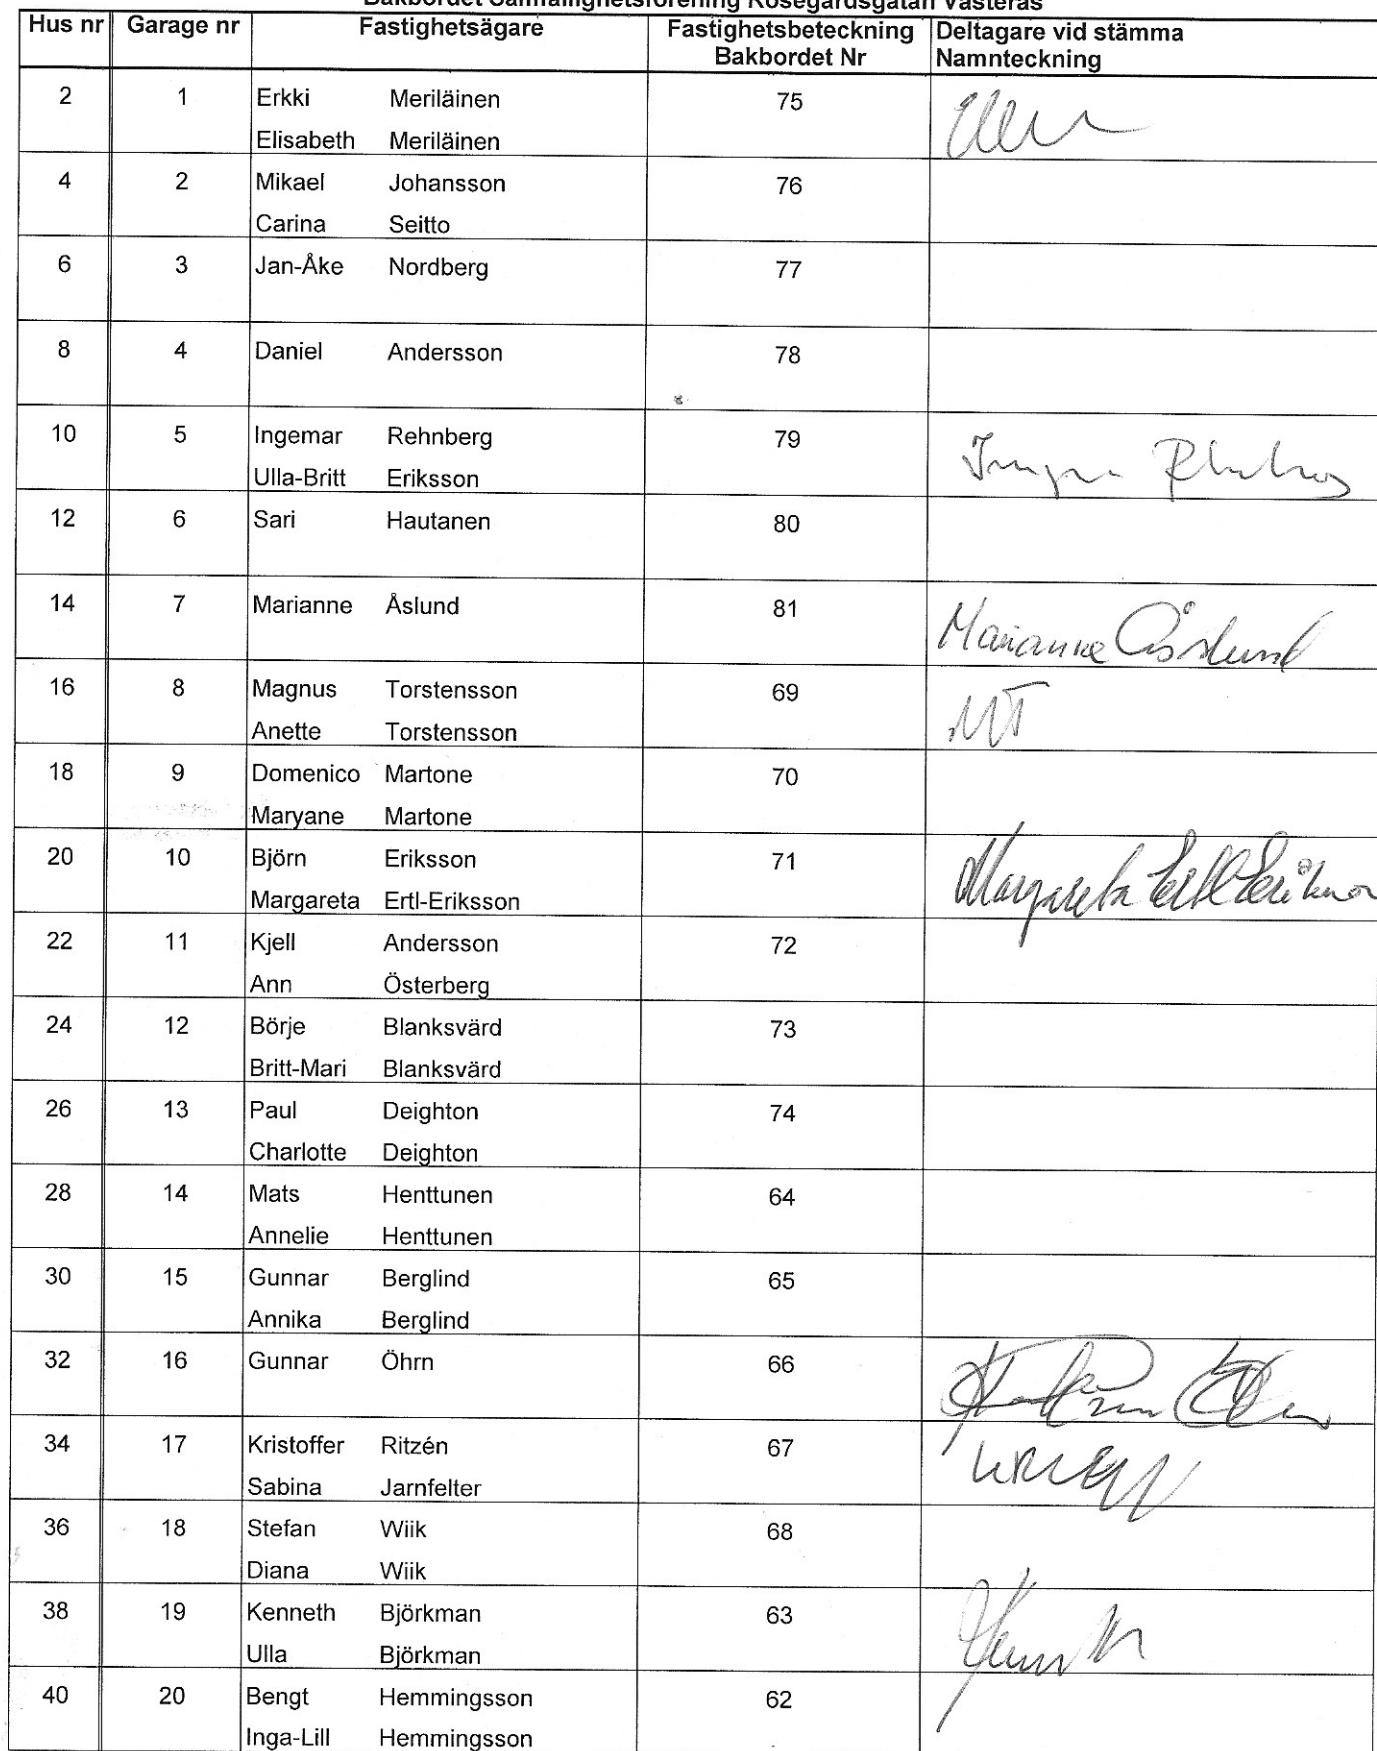 Bakbordet Samfällighetsförening Rosegårdsgatan Västerås
Hus nr Garage nr Fastighetsägare Fastighetsbeteckning Deltagare vid stämma
Bakbordet Nr Namnteckning
2 1 Erkki Meriläinen 75
Elisabeth Meriläinen
4 2 Mikael Johansson 76
Carina Seitto
6 3 Jan-Åke Nordberg 77
8 4 Daniel Andersson 78
10 5 Ingemar Rehnberg 79
Ulla-Britt Eriksson
12 6 Sari Hautanen 80
14 7 Marianne Åslund 81 Marianne Åslund
16 8 Magnus Torstensson 69 MT
Anette Torstensson
18 9 Domenico Martone 70
Maryane Martone
20 10 Björn Eriksson 71 Margareta Ertl Eriksson
Margareta Ertl-Eriksson
22 11 Kjell Andersson 72
Ann Österberg
24 12 Börje Blanksvärd 73
Britt-Mari Blanksvärd
26 13 Paul Deighton 74
Charlotte Deighton
28 14 Mats Henttunen 64
Annelie Henttunen
30 15 Gunnar Berglind 65
Annika Berglind
32 16 Gunnar Öhrn 66
34 17 Kristoffer Ritzén 67
Sabina Jarnfelter
36 18 Stefan Wiik 68
Diana Wiik
38 19 Kenneth Björkman 63
Ulla Björkman
40 20 Bengt Hemmingsson 62
Inga-Lill Hemmingsson